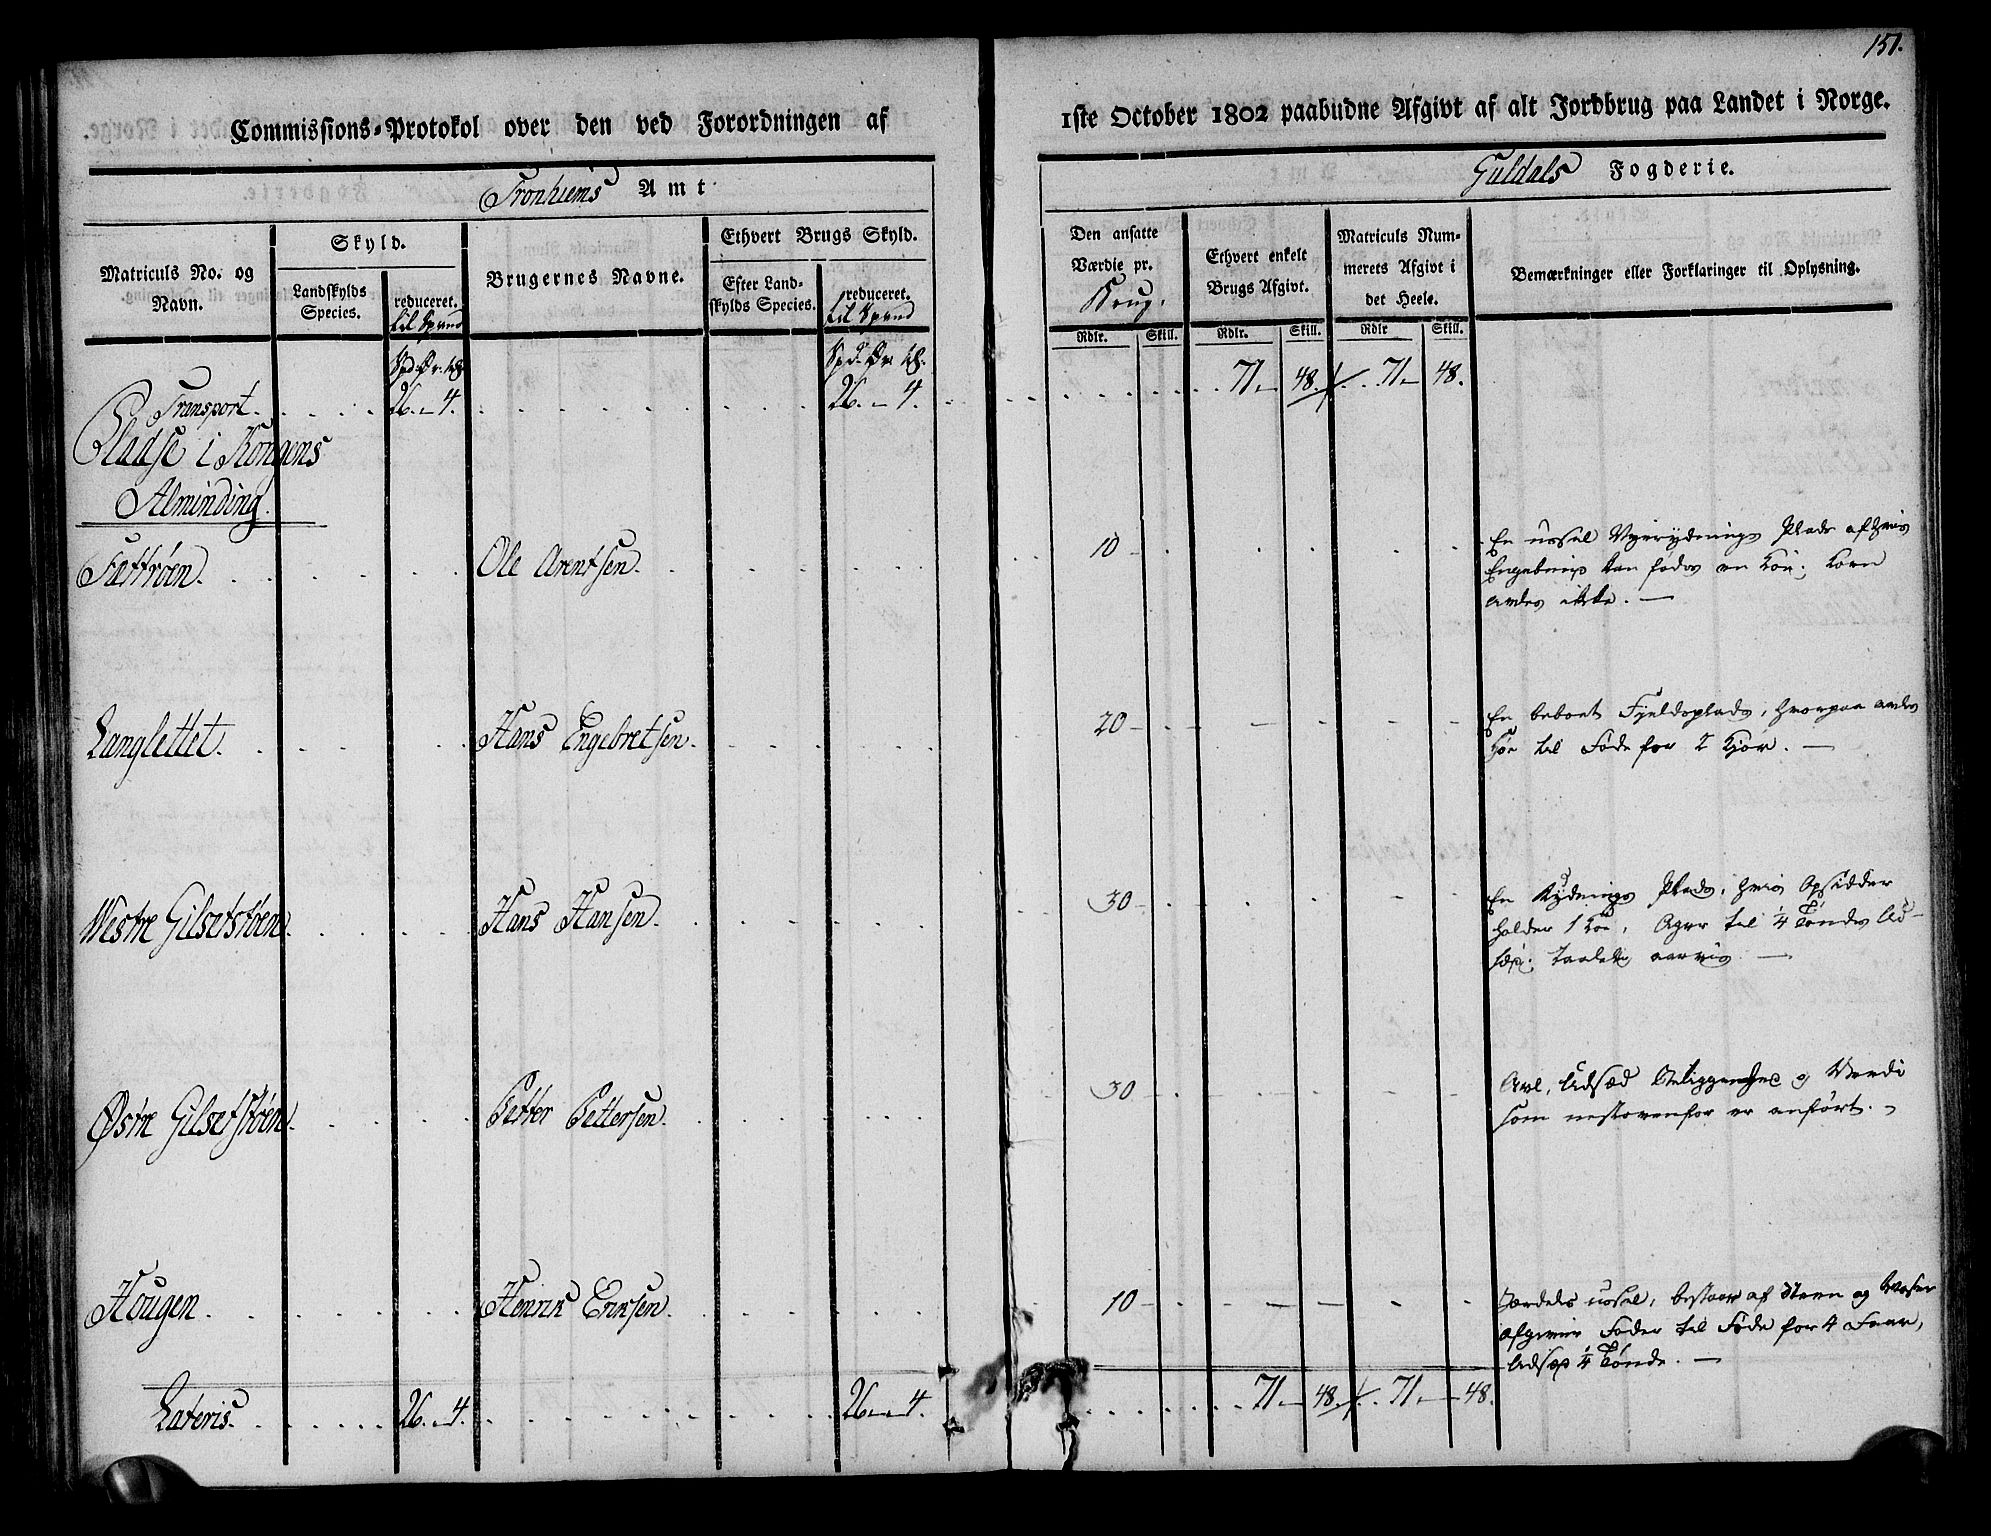 151.
Commissions-Protokol over den ved Forordningen af
1ste October 1802 paabudne Afgivt af alt Jordbrug paa Landet i Norge.
Tronhiems Amt
Guldals Fogderie.
Matriculs No. og Navn.
Skyld.
Landskylds Species.
reduceret. til Spand
Brugernes Navne.
Ethvert Brugs Skyld.
Efter Landskylds Species.
reduceret. til Spand
Den ansatte Værdie pr. Brug.
Ethvert enkelt Brugs Afgivt.
Matriculs Nummerets Afgivt i det Heele.
Bemærkninger eller Forklaringer til Oplysning.
Rdlr. Skill. Rdlr. Skill. Rdlr Skill.
Transport. 26. 4. 26. 4. 71 48. 71 48.
Pladse i Kongens
Alminding.
Ole Arentsen. 10
En ussel Nyerydnings Plads af hvis
Engebund kan fødes en Koe; Korn
avles ikke.
Langlettet. Hans Engebretsen. 20
En beboet Fjeldplads, hvorpaa avles
Høe til Føde for 2 Kjør.
Westre Gilsetstrøen. Hans Hansen. 30
En Rydnings Plads, hvis Opsidder
holder 1 Koe, Ager til 1/4 Tøndes Ud-
sæd; aarvis
Østre Gilsetstrøen. Petter Pettersen. 30
Avl, Udsæd Beliggenhed og Værdi
som nestovenfor er anført.
Hougen. Henrik Eriksen. 10
Jordels ussel, bestaar af Steen og
afgiver Foder til Føde for 4 Faar,
Udsæd 1/4 Tønde.
Lateris. 26. 4. 26. 4. 71 48. 71. 48.